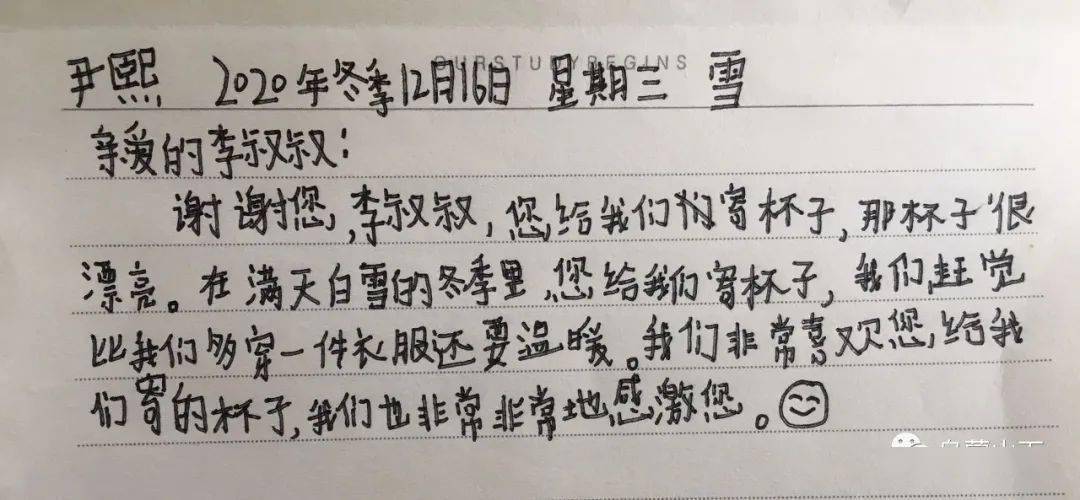 OURSTUDYBEGINS
尹熙 2020年冬季12月16日 星期三 雪
亲爱的李叔叔:
谢谢您,李叔叔,您给我们寄杯子,那杯子很
漂亮。在满天白雪的冬季里,您给我们寄杯子,我们觉
比我们多穿一件衣服还要温暖。我们非常喜欢您,给我
们寄的杯子,我们也非常非常地感激您。
乌蒙山下